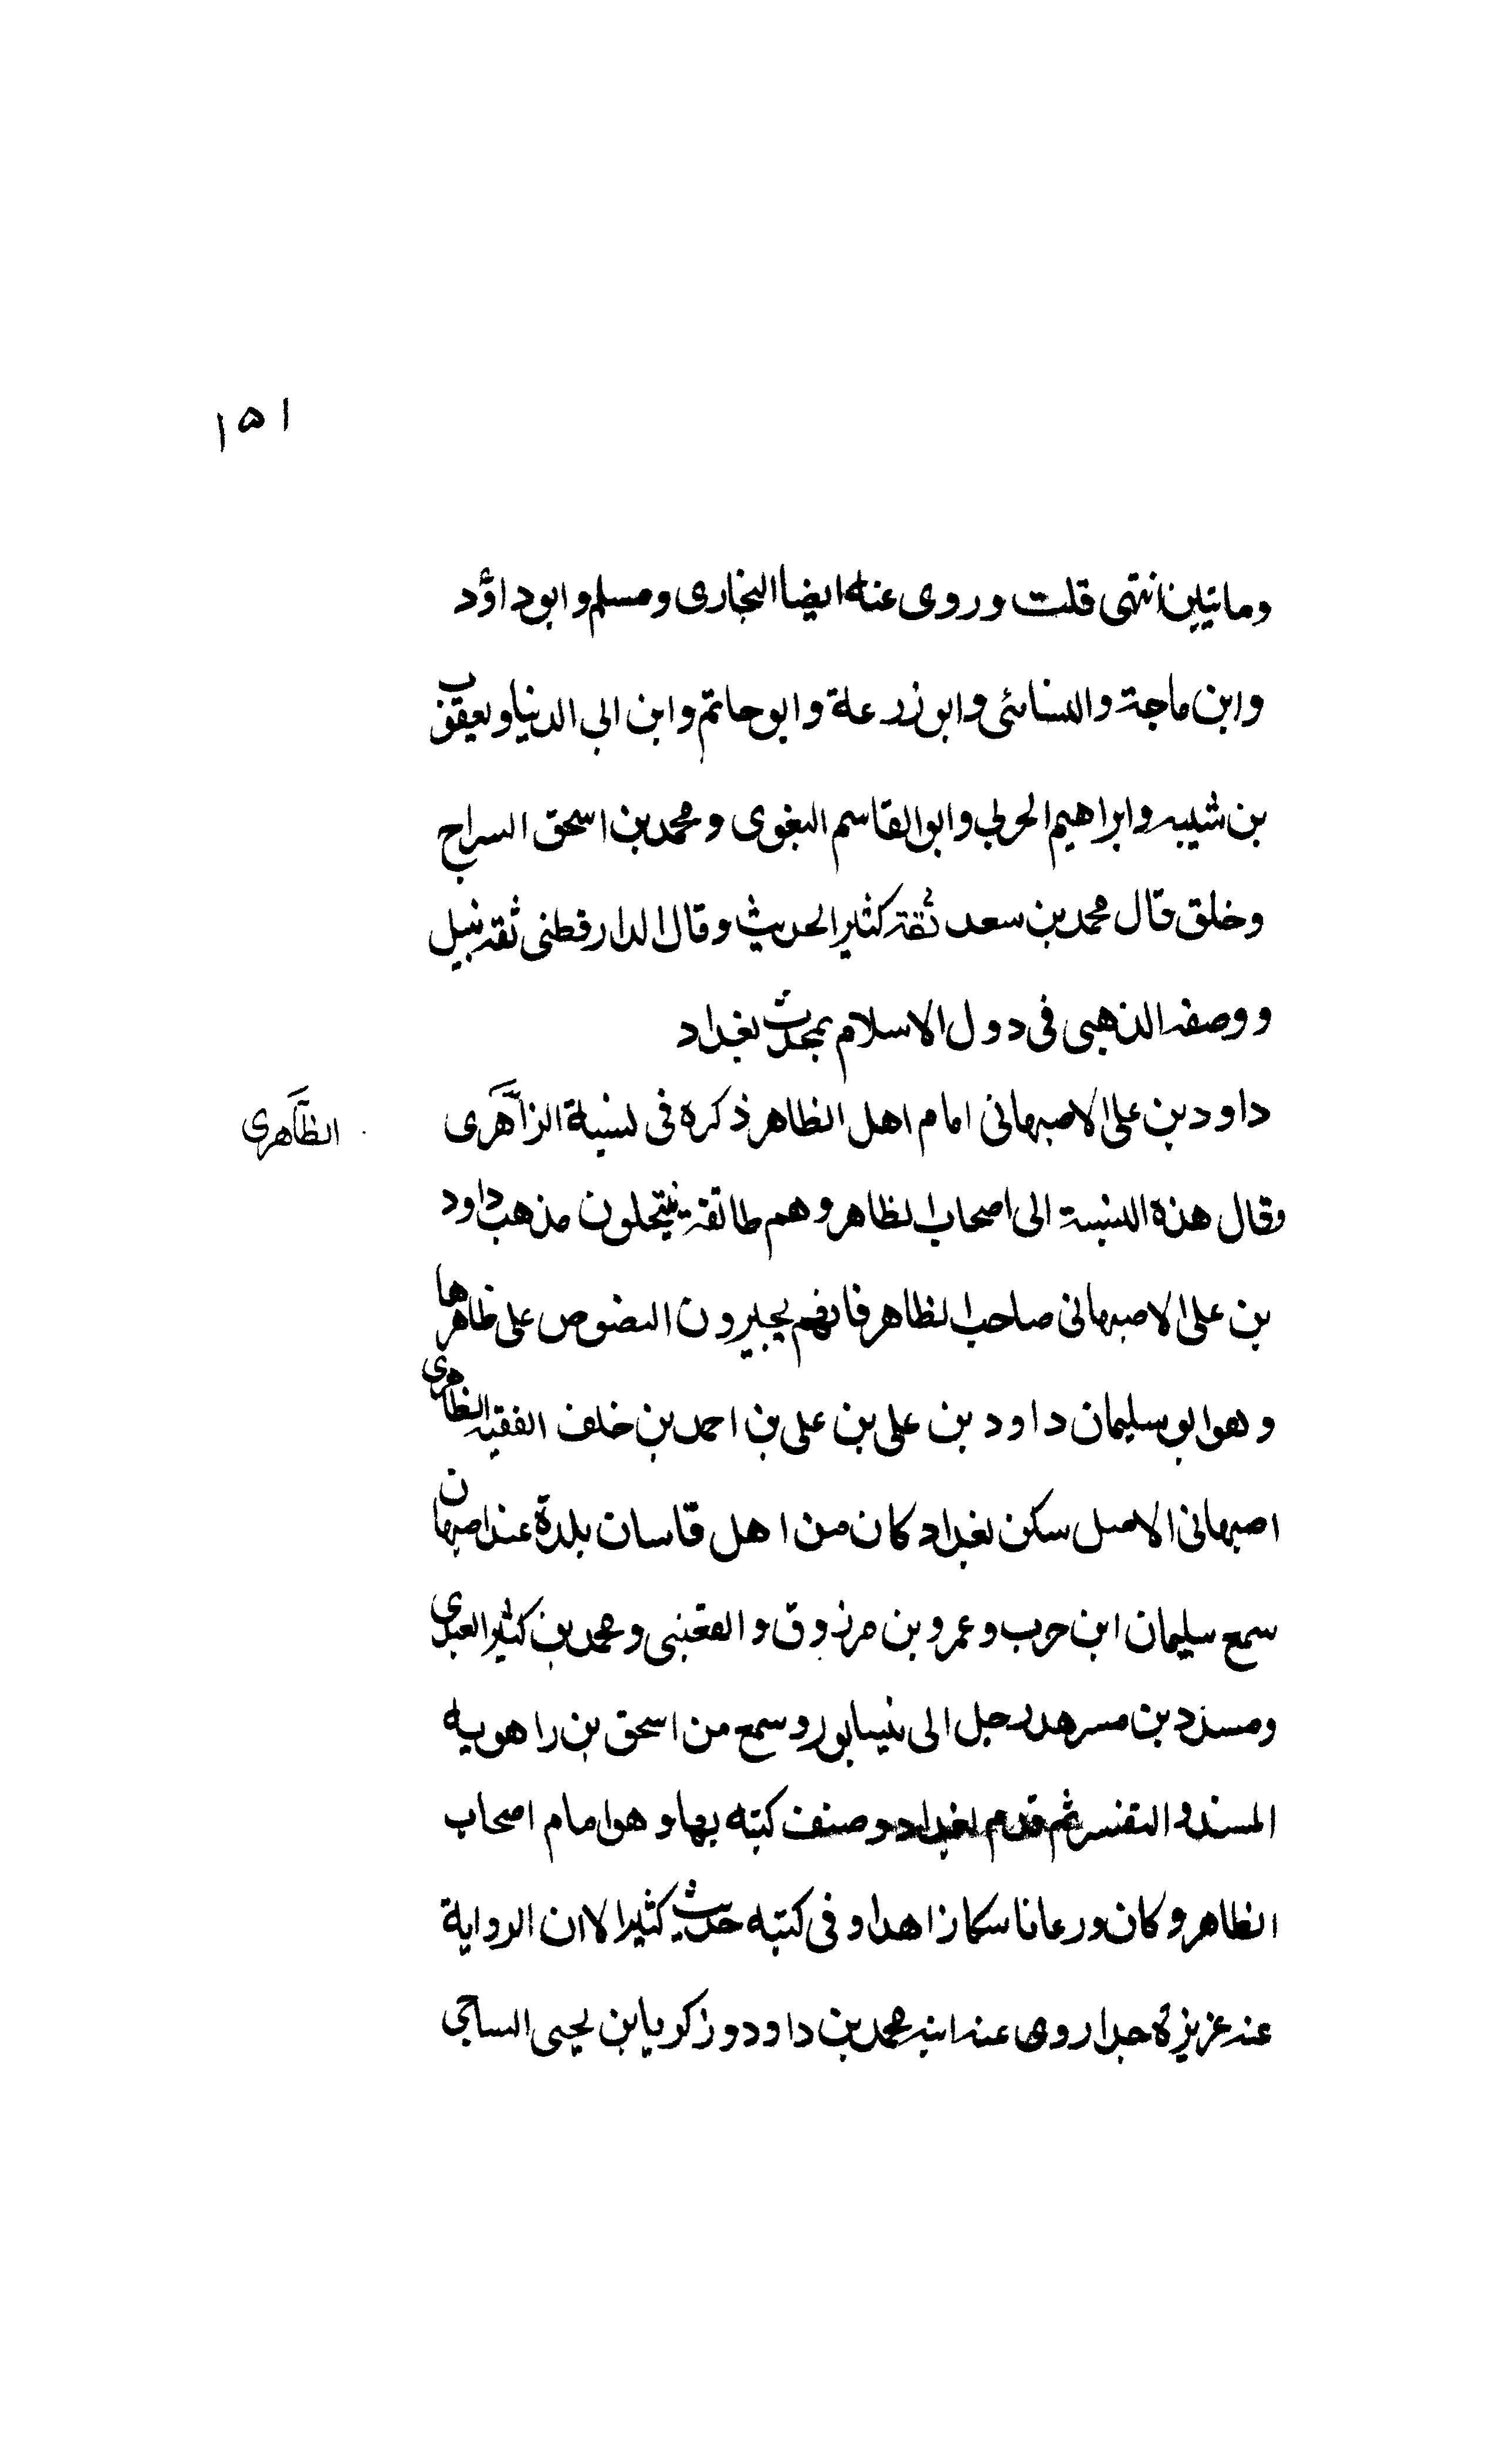 ١٥١
وماتين انتهى قلت وروى عنه ايضا البخارى ومسلم وابو داؤد
وابن ماجة والنسائى وابو زرعة وابو حاتم وابن ابى الدنيا ويعقوب
بن شيبه وابراهيم الحربى وابو القاسم البغوى ومحمد بن اسحق السراج
وخلق قال محمد بن سعد ثقة كثير الحديث وقال الدارقطنى ثقه نبيل
ووصفه الذهبى فى دول الاسلام بمحدث بغداد
داود بن على الاصبهانى امام اهل الظاهر ذكره فى نسبة الزاهرى
الظاهرى
وقال هذه النسبة الى اصحاب الظاهر وهم طائفة ينتحلون مذهب داود
بن على الاصبهانى صاحب الظاهر فانهم يجيرون النصوص على ظاهرها
وهو ابو سليمان داود بن على بن على بن احمد بن خلف الفقيه الظاهرى
اصبهانى الاصل سكن بغداد كان من اهل قاسان بلدة عند اصبهان
سمع سليمان ابن حرب وعمرو بن مرزوق والقعنبى ومحمد بن كثير العبدى
ومسدد بن مسرهد رحل الى نيسابور وسمع من اسحق بن راهويه
المسند والتفسير ثم قدم بغداد وصنف كتبه بها وهو امام اصحاب
الظاهر وكان ورعا ناسكا زاهدا وفى كتبه حديث كثير الا ان الرواية
عنه عزيزة جدا روى عنه ابنه محمد بن داود وزكريا بن يحيى الساجى